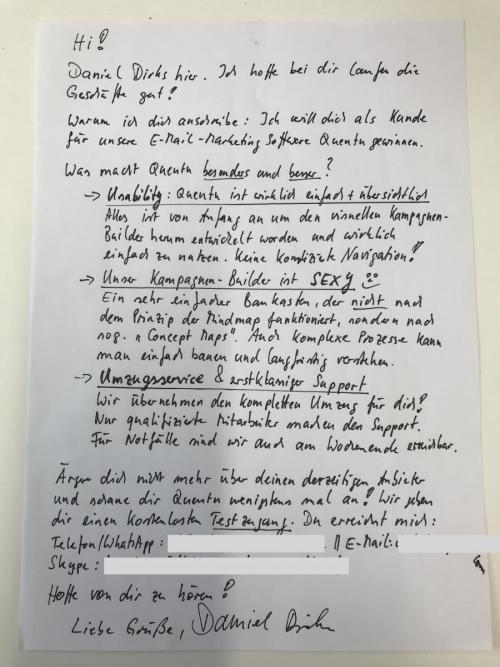 Hi!
Daniel Dirks hier. Ich hoffe bei dir laufen die
Geschäfte gut!
Warum ich dich anschreibe: Ich will dich als Kunde
für unsere E-Mail-Marketing Software Quentn gewinnen.
Was macht Quentn besonders und besser?
→ Usability: Quentn ist wirklich einfach + übersichtlich
Alles ist von Anfang an um den visuellen Kampagnen-
Builder herum entwickelt worden und wirklich
einfach zu nutzen. Keine komplizierte Navigation!
→ Unser Kampagnen-Builder ist SEXY
Ein sehr einfacher Baukasten, der nicht nach
dem Prinzip der Mindmap funktioniert, sondern nach
sog. "Concept Maps". Auch komplexe Prozesse kann
man einfach bauen und langfristig verstehen.
→ Umzugsservice & erstklassiger Support
Wir übernehmen den kompletten Umzug für dich!
Nur qualifizierte Mitarbeiter machen den Support.
Für Notfälle sind wir auch am Wochenende erreichbar.
Ärger dich nicht mehr über deinen derzeitigen Anbieter
und schaue dir Quentn wenigstens mal an! Wir geben
dir einen kostenlosen Testzugang. Du erreichst mich:
Telefon/WhatsApp: || E-Mail:
com
Skype:
Hoffe von dir zu hören!
Liebe Grüße, Daniel